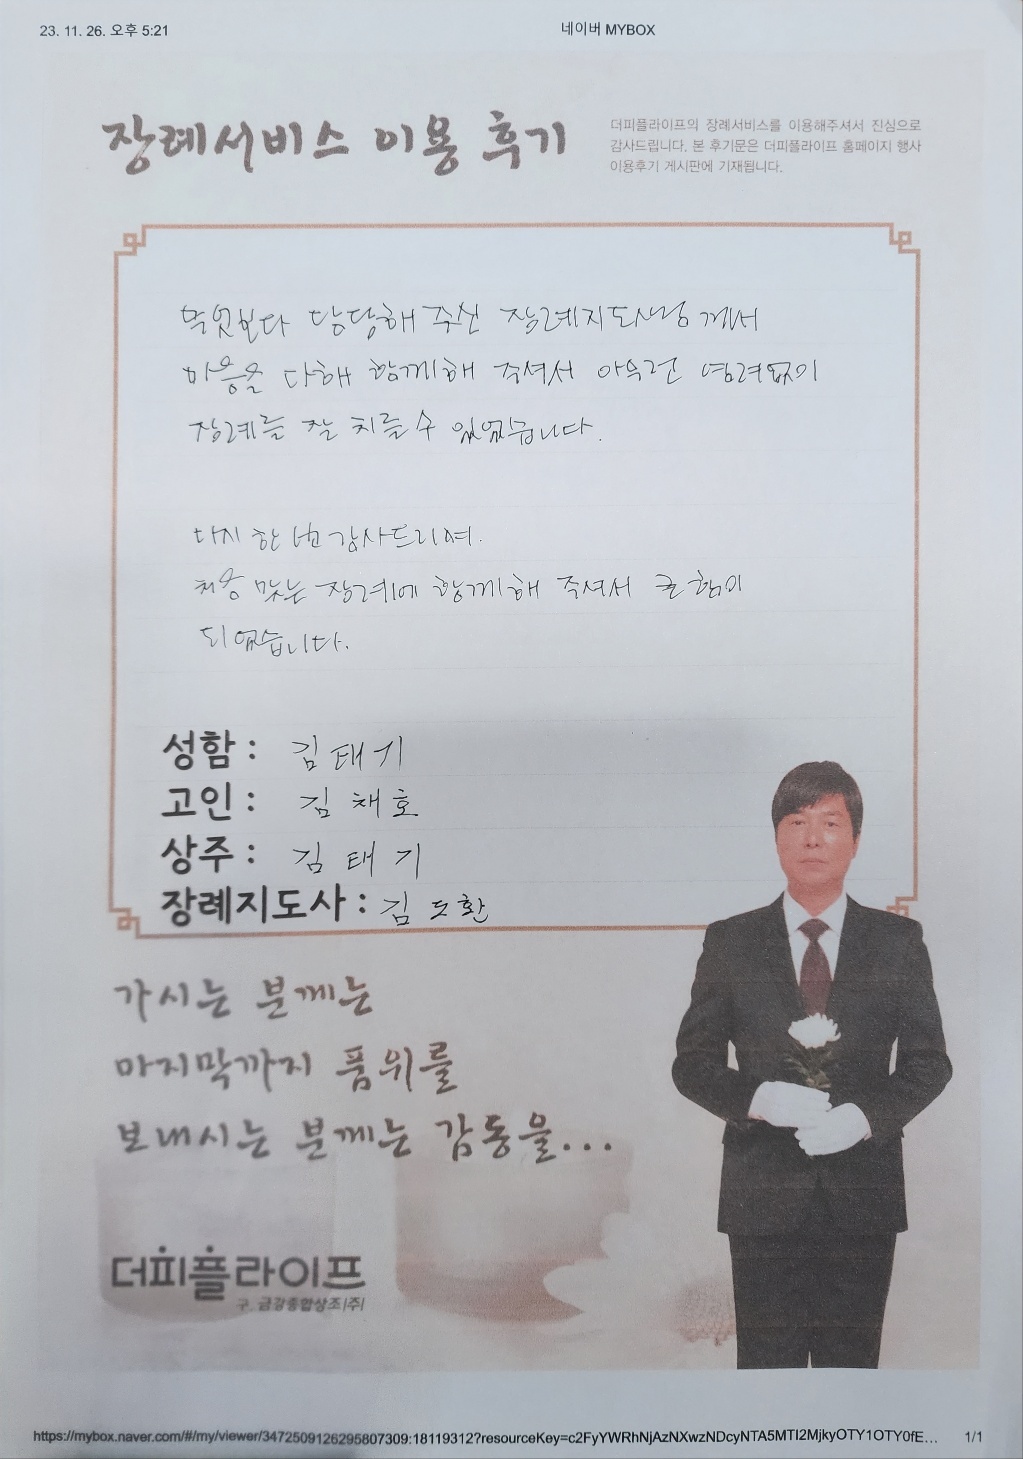 23. 11. 26. 오후 5:21
네이버 MYBOX
장례서비스 이용 후기
더피플라이프의 장례서비스를 이용해주셔서 진심으로
감사드립니다. 본 후기문은 더피플라이프 홈페이지 행사
이용후기 게시판에 기재됩니다.
무엇보다 담당해 주신 장례지도사님께서
마음을 다해 함께해 주셔서 아무런 염려없이
장례를 잘 치를 수 있었습니다.
다시 한 번 감사드리며.
처음 맞는 장례에 함께해 주셔서 큰 힘이
되었습니다.
성함 : 김태기
고인 : 김채호
상주 : 김태기
장례지도사 : 김도환
가시는 분께는
마지막까지 품위를
보내시는 분께는 감동을...
더피플라이프
구. 금강종합상조(주)
https://mybox.naver.com/#/my/viewer/3472509126295807309:18119312?resourceKey=c2FyYWRhNjAzNXwzNDcyNTA5MTI2MjkyOTY1OTY0fE... 1/1